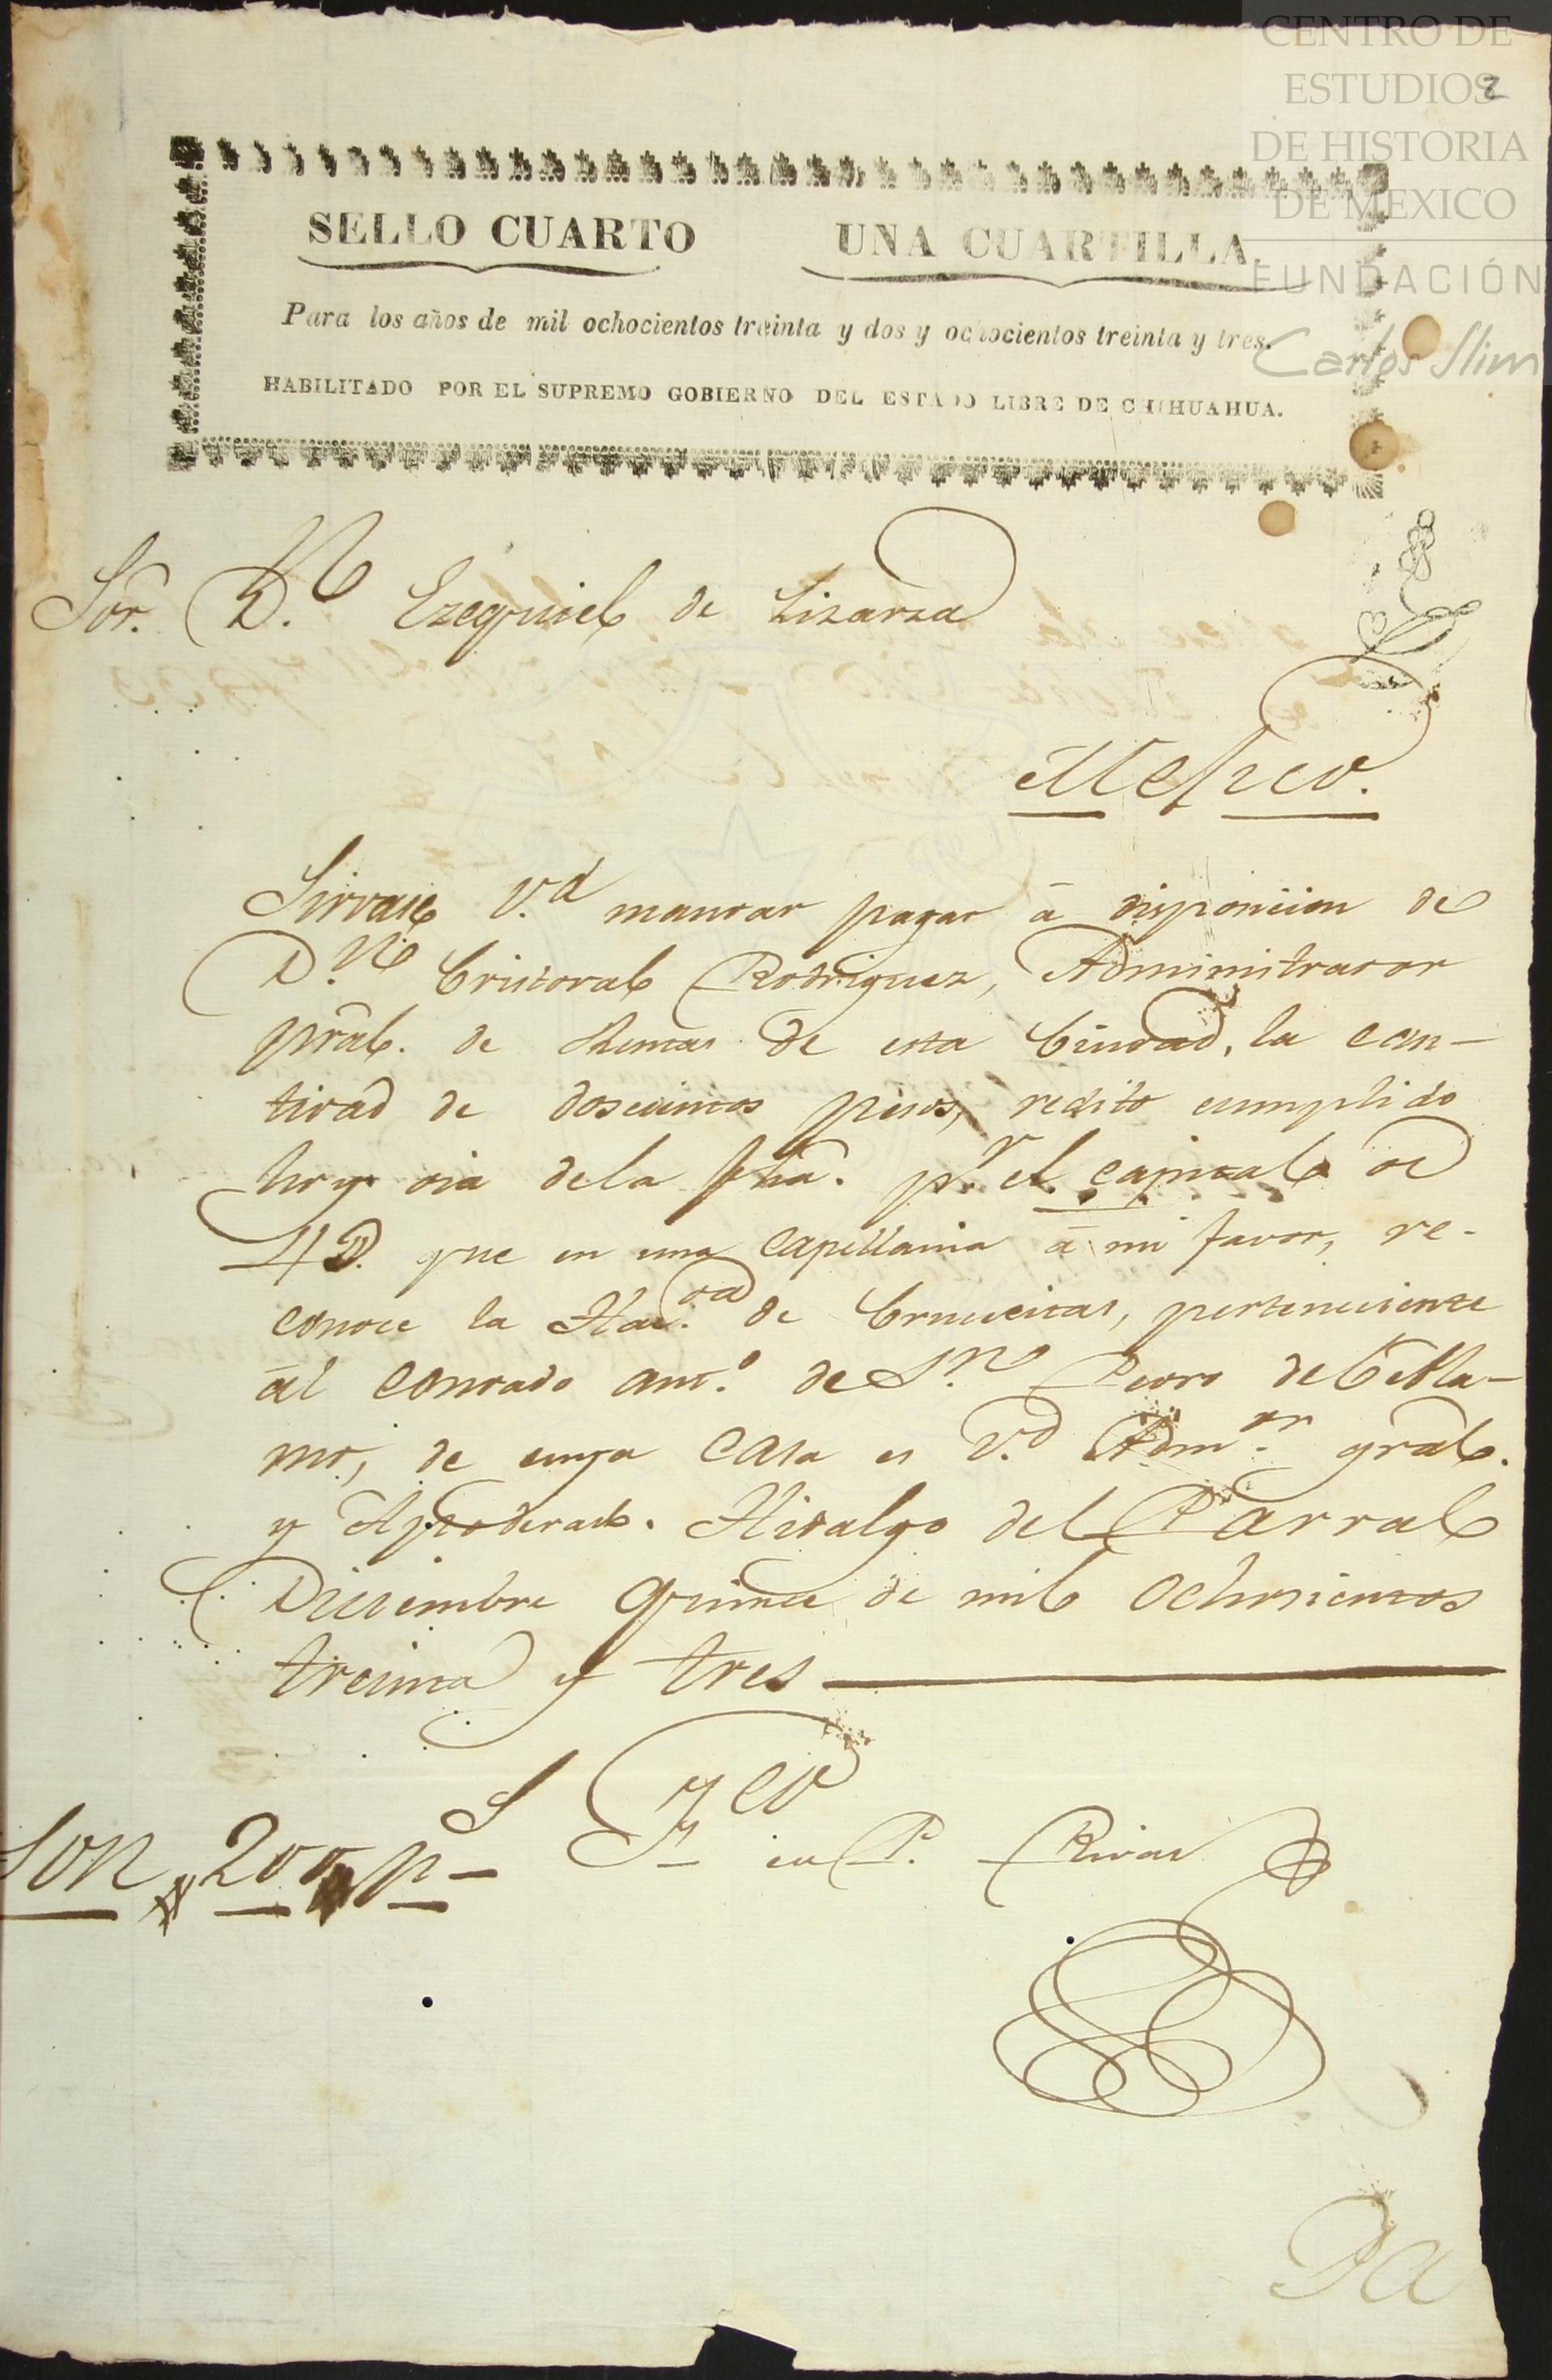 CENTRO DE
ESTUDIOS
DE HISTORIA
DE MEXICO
FUNDACIÓN
Carlos Slim
2
SELLO CUARTO UNA CUARTILLA.
Para los años de mil ochocientos treinta y dos y ochocientos treinta y tres.
HABILITADO POR EL SUPREMO GOBIERNO DEL ESTADO LIBRE DE CHIHUAHUA.
Sor. D.n Ezequiel de Lizarza
Mexico.
Sirvase V.d mandar pagar á disposicion de
D.n Cristoval Rodriguez, Administrador
pral. de Rentas de esta Ciudad, la can-
tidad de doscientos pesos, redito cumplido
hoy dia de la fha. p.r el capital de
4 D. que en una capellania á mi favor, re-
conoce la Hac.da de Crucecitas, perteneciente
al condado ant.o de S.n Pedro del Ala-
mo, de cuya casa es V.d Adm.or gral.
y Apoderado. Hidalgo del Parral
Diciembre quince de mil ochosientos
treinta y tres
Son 200 p.s
Fco P. Rivas
Pa